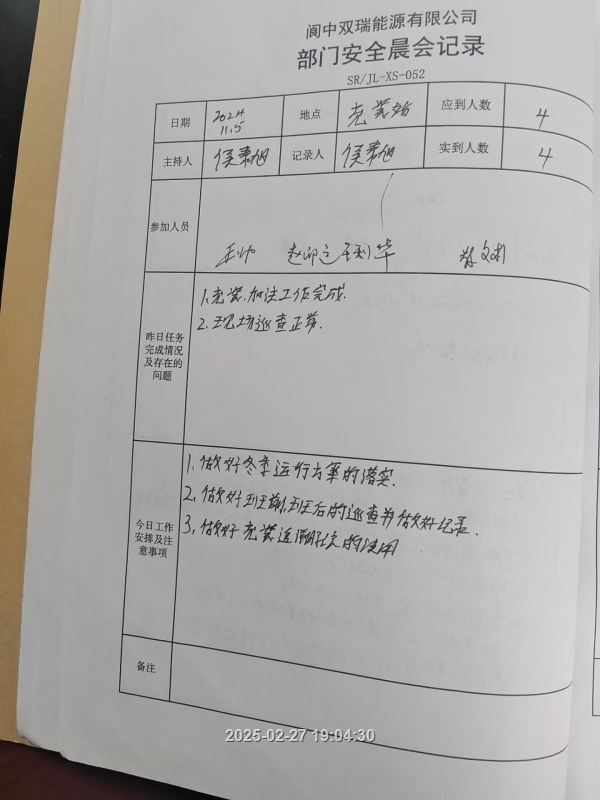 阆中双瑞能源有限公司
部门安全晨会记录
SR/JL-XS-052
日期 2024 11.5 地点 充装站 应到人数 4
主持人 侯素旭 记录人 侯素旭 实到人数 4
参加人员
王帅
昨日任务完成情况及存在的问题
1.充装.加注工作完成.
2.现场巡查正常.
今日工作安排及注意事项
1、做好冬季运行方案的落实.
2、做好班前,班后的巡查并做好记录.
3、做好充装 的使用
备注
2025-02-27 19:04:30